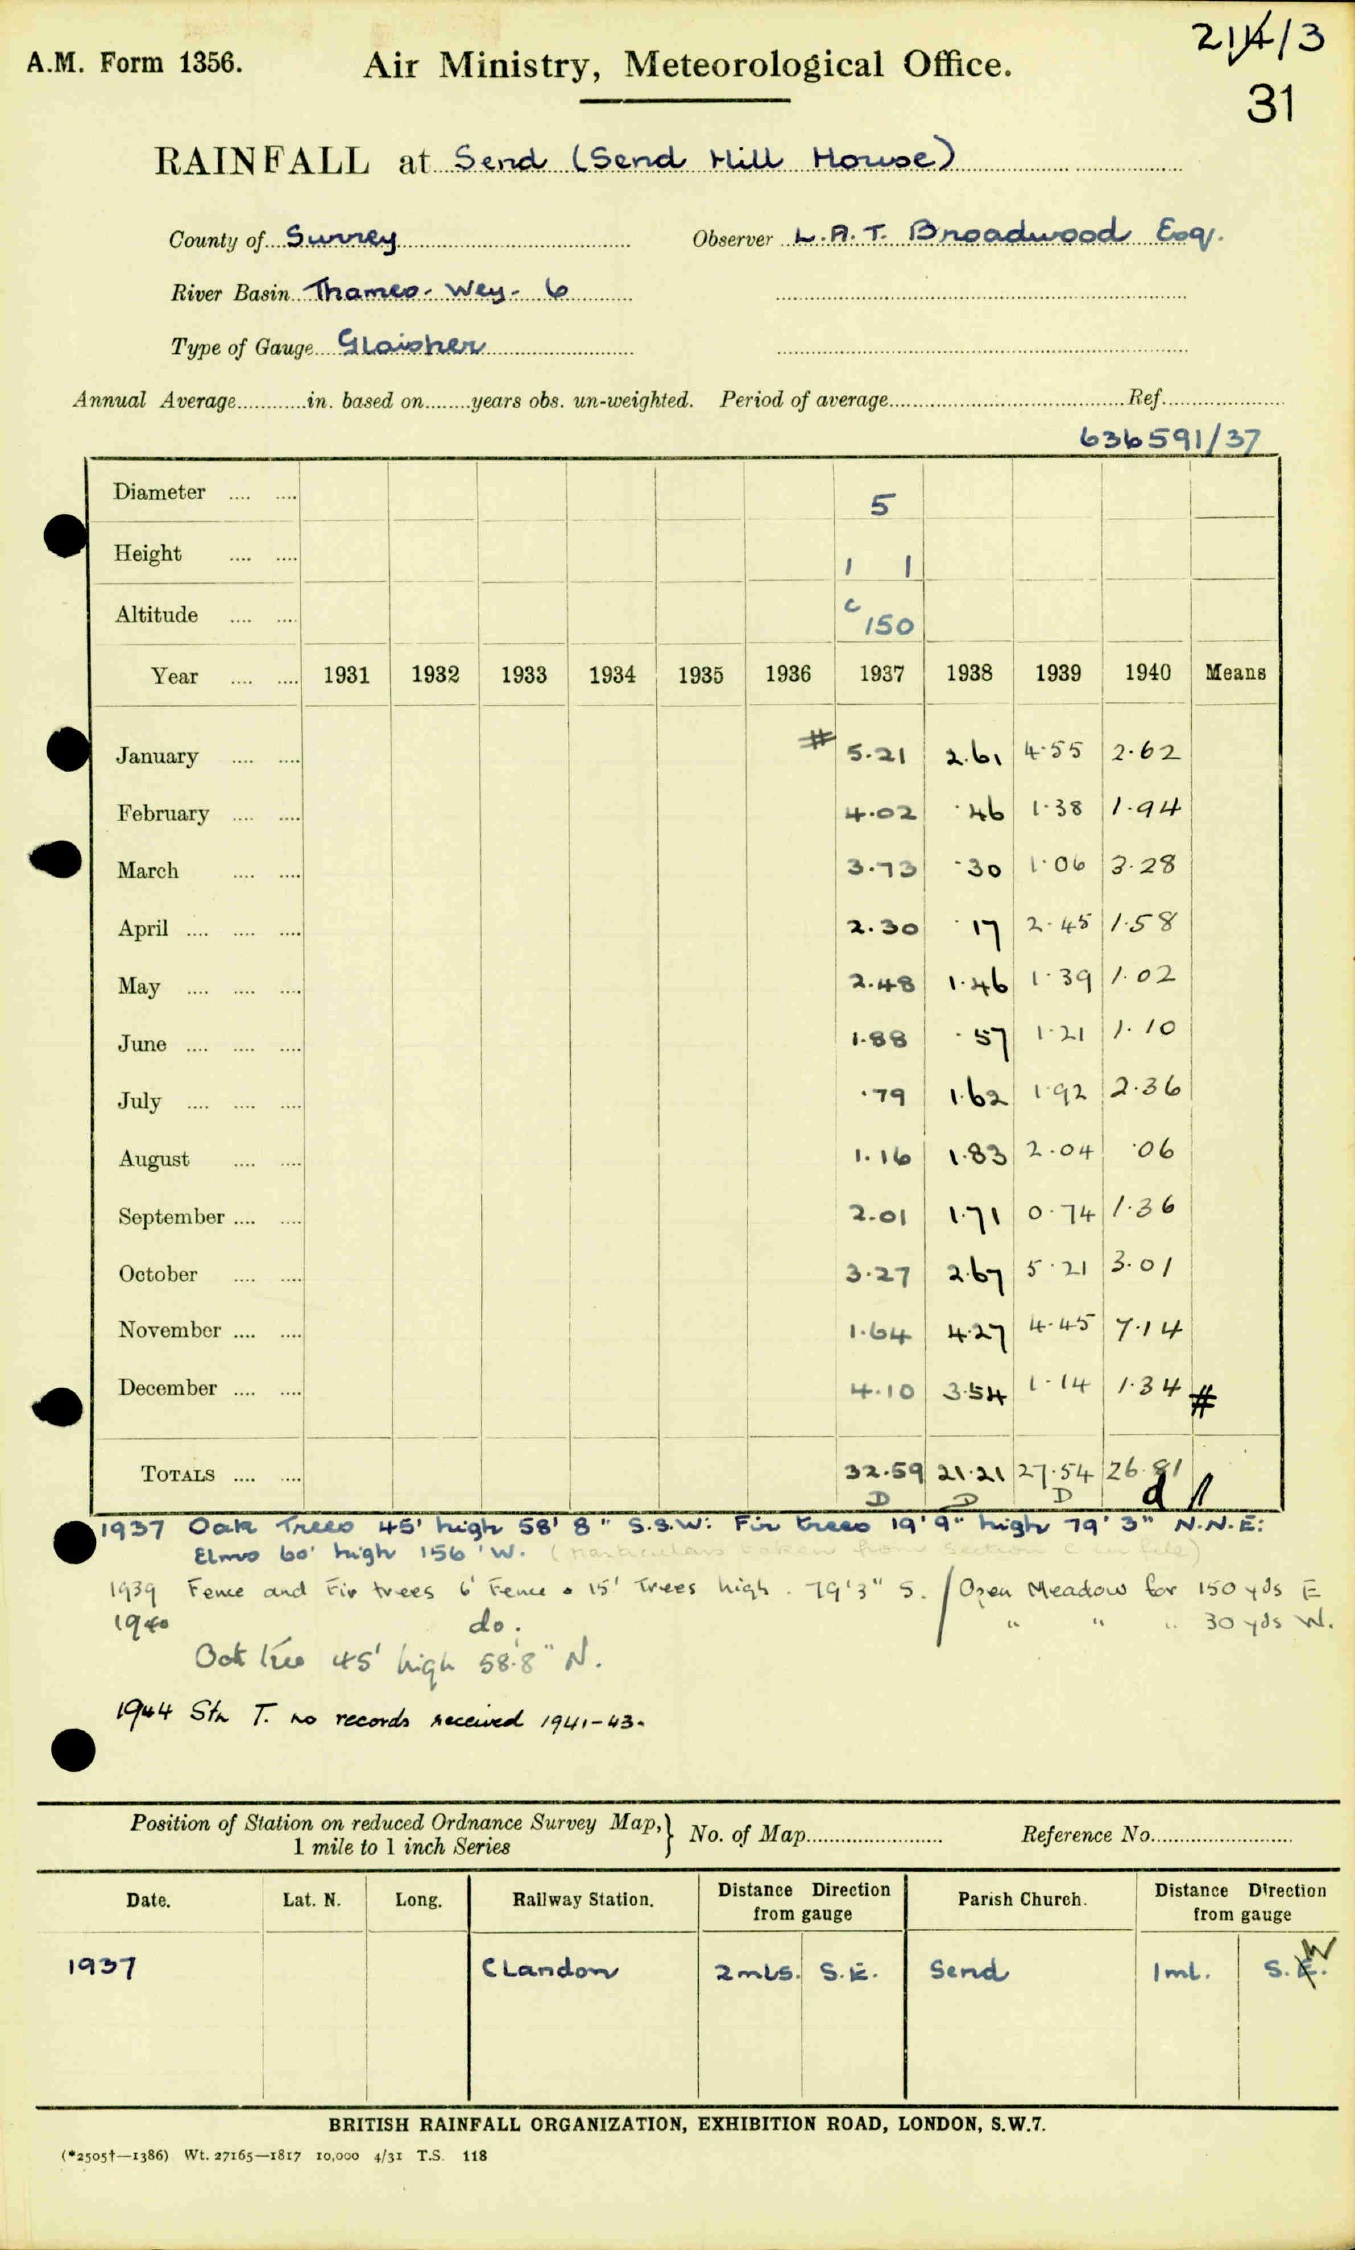 A.M. Form 1356.
Air Ministry, Meteorological Office.
/3
31
RAINFALL at Send (Send Hill House)
County of Surrey Observer L.A.T. Broadwood Esq.
River Basin Thames - Wey - 6
Type of Gauge Glaisher
Annual Average............in. based on........years obs. un-weighted. Period of average........................................Ref.....................
636591/37
Diameter .... .... 5
Height .... .... 1 1
Altitude .... .... c 150
Year .... .... 1931 1932 1933 1934 1935 1936 1937 1938 1939 1940 Means
January .... .... # 5.21 2.61 4.55 2.62
February .... .... 4.02 .46 1.38 1.94
March .... .... 3.73 .30 1.06 3.28
April .... .... .... 2.30 .17 2.45 1.58
May .... .... .... 2.48 1.46 1.39 1.02
June .... .... .... 1.88 .57 1.21 1.10
July .... .... .... .79 1.62 1.92 2.36
August .... .... 1.16 1.83 2.04 .06
September .... .... 2.01 1.71 0.74 1.36
October .... .... 3.27 2.67 5.21 3.01
November .... .... 1.64 4.27 4.45 7.14
December .... .... 4.10 3.54 1.14 1.34 #
TOTALS .... .... 32.59 21.21 27.54 26.81
D D D d
1937 Oak Trees 45' high 58' 8" S.S.W: Fir trees 19' 9" high 79' 3" N.N.E:
Elms 60' high 156' W. (Particulars taken from Section C in file)
1939 Fence and Fir trees 6' Fence & 15' Trees high. 79'3" S. / Open Meadow for 150 yds E
1940 do. " " " 30 yds W.
Oak tree 45' high 58'8" N.
1944 Stn T. no records received 1941-43.
Position of Station on reduced Ordnance Survey Map, } No. of Map........................ Reference No.........................
1 mile to 1 inch Series
Date. Lat. N. Long. Railway Station. Distance Direction from gauge Parish Church. Distance Direction from gauge
1937 Clandon 2 mls. S.E. Send 1 ml. S.W
BRITISH RAINFALL ORGANIZATION, EXHIBITION ROAD, LONDON, S.W.7.
(*2505†—1386) Wt. 27165—1817 10,000 4/31 T.S. 118